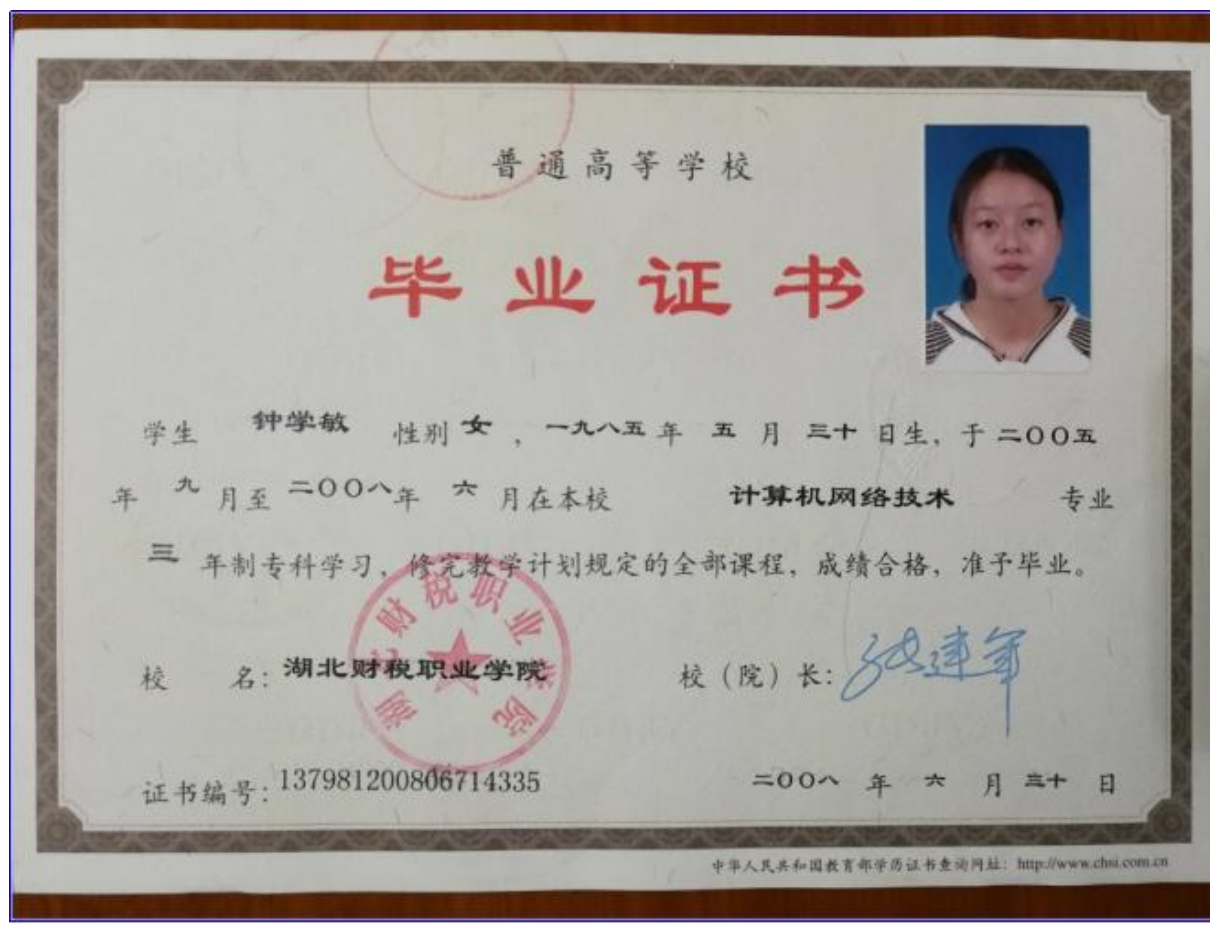 普通高等学校
毕业证书
学生 钟学敏 性别 女 ，一九八五 年 五 月 三十 日生，于 二〇〇五
年 九 月至 二〇〇八 年 六 月在本校 计算机网络技术 专业
三 年制专科学习，修完教学计划规定的全部课程，成绩合格，准予毕业。
校 名：湖北财税职业学院 校（院）长：
湖北财税职业学院
证书编号：137981200806714335 二〇〇八 年 六 月 三十 日
中华人民共和国教育部学历证书查询网址：http://www.chsi.com.cn